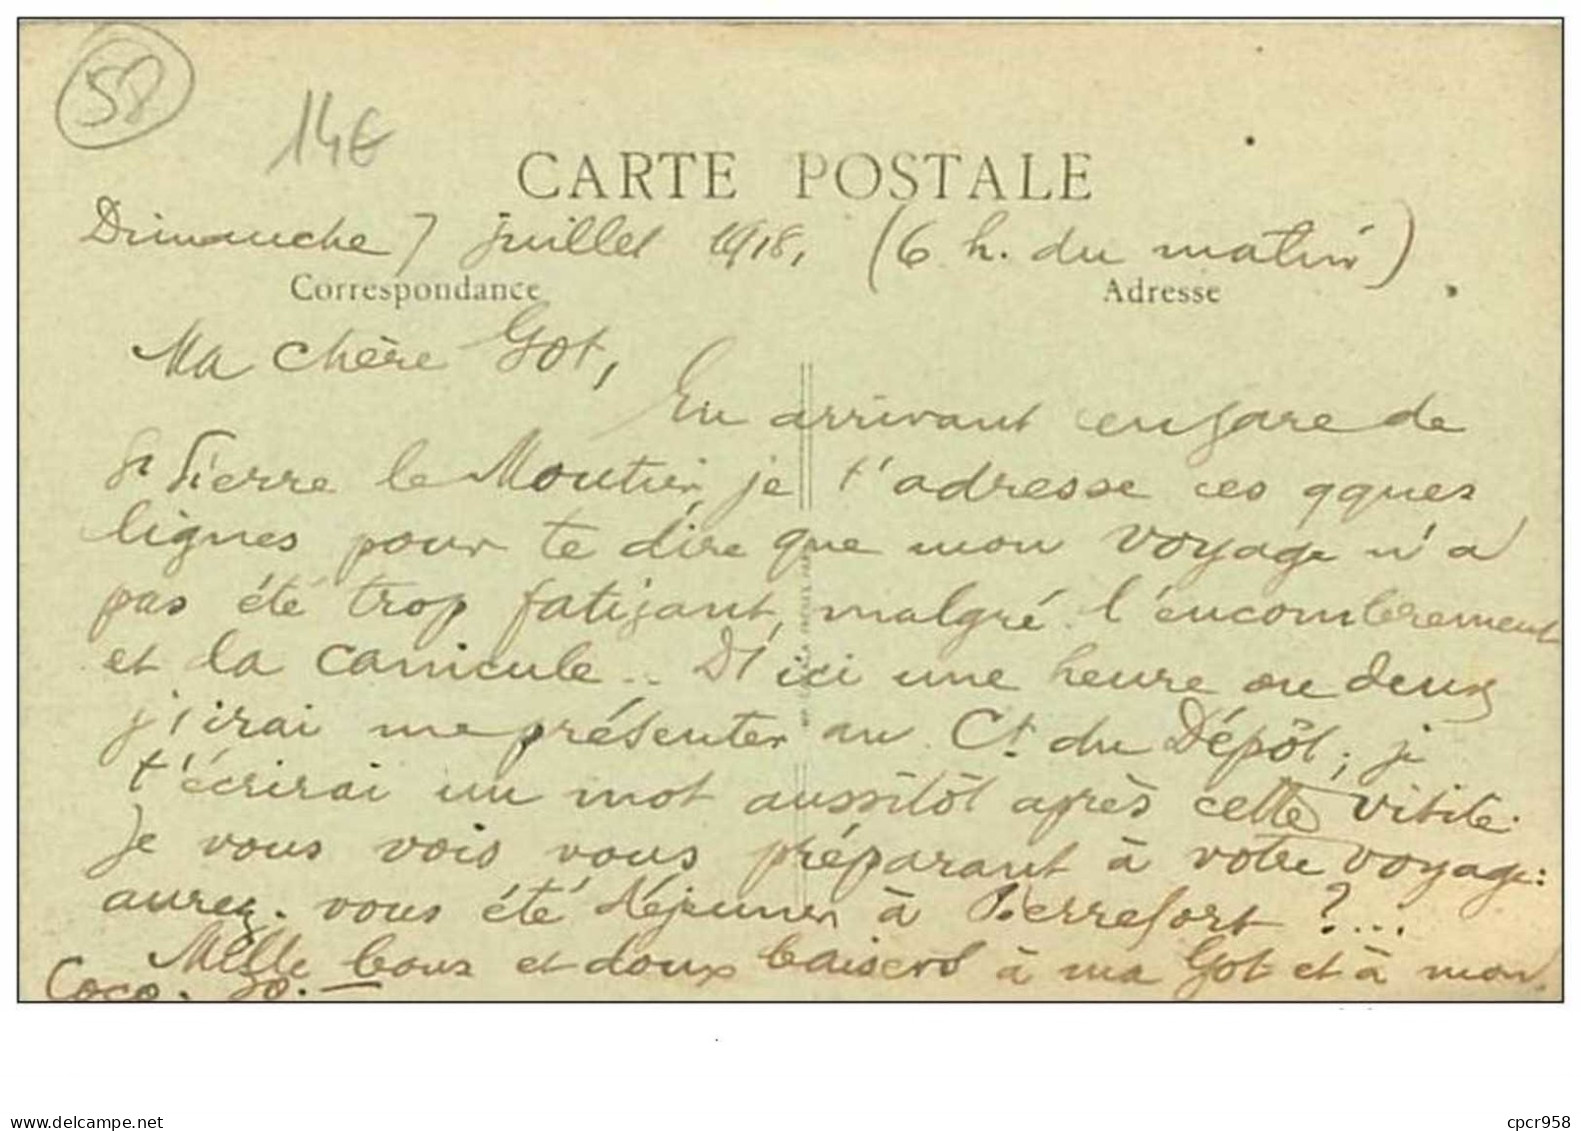 58
14€
CARTE POSTALE
Dimanche 7 juillet 1918, (6 h. du matin)
Correspondance
Adresse
Ma chère Got,
En arrivant en gare de
St Pierre le Moutier, je t'adresse ces qques
lignes pour te dire que mon voyage n'a
pas été trop fatigant, malgré l'encombrement
et la canicule.. D'ici une heure ou deux
j'irai me présenter au Ct du Dépôt; je
t'écrirai un mot aussitôt après cette visite.
Je vous vois vous préparant à votre voyage:
aurez-vous été déjeuner à Pierrefort?...
Mille bons et doux baisers à ma Got et à mon
Coco. Jo. —
www.delcampe.net
cpcr958